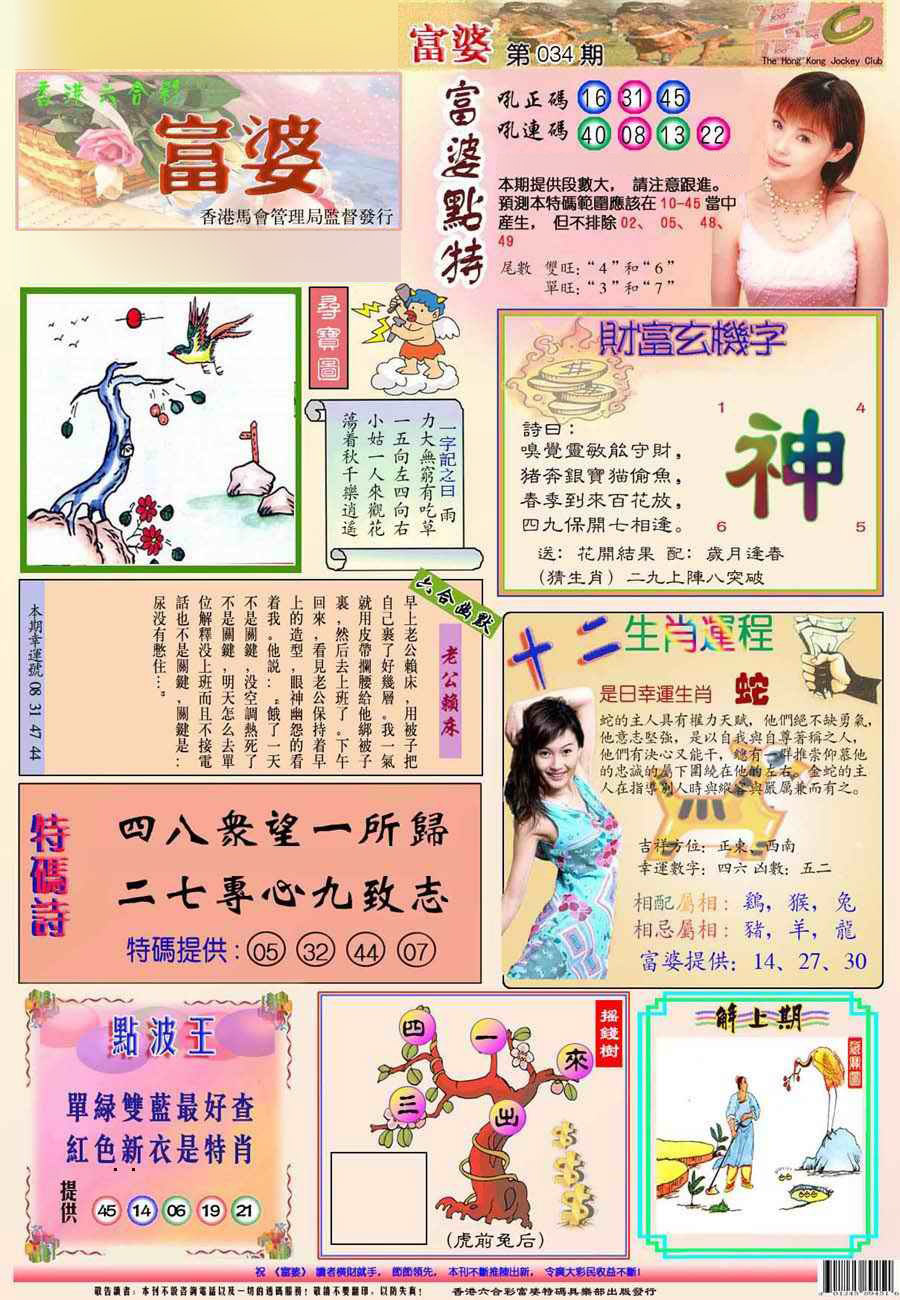 富婆 第034期
The Hong Kong Jockey Club
香港六合彩
富婆
香港馬會管理局監督發行
富婆點特
吼正碼 16 31 45
吼連碼 40 08 13 22
本期提供段數大， 請注意跟進。
預測本特碼範圍應該在10-45當中
産生， 但不排除02、 05、 48、
49
尾數 雙旺:“4”和“6”
單旺:“3”和“7”
尋寶圖
一字記之曰 雨
力大無窮有吃草
一五向左四向右
小姑一人來觀花
蕩着秋千樂逍遥
財富玄機字
詩曰：
嗅覺靈敏能守財，
猪奔銀寶猫偷魚，
春季到來百花放，
四九保開七相逢。
1 4
神
6 5
送：花開結果 配：歲月逢春
（猜生肖）二九上陣八突破
本期幸運號 08 31 47 44
六合幽默
老公賴床
早上老公賴床,用被子把
自己裹了好幾層。我一氣
就用皮帶攔腰給他綁被子
裏,然后去上班了。下午
回來,看見老公保持着早
上的造型,眼神幽怨的看
着我。他説:“餓了一天
不是關鍵,没空調熱死了
不是關鍵,明天怎么去單
位解釋没上班而且不接電
話也不是關鍵,關鍵是:
尿没有憋住…”
十二生肖運程
是日幸運生肖 蛇
蛇的主人具有權力天賦，他們絕不缺勇氣，
他意志堅強，是以自我與自尊著稱之人，
他們有決心又能干，總有一群推崇仰慕他
的忠誠的屬下圍繞在他的左右。金蛇的主
人在指導別人時與縱容與嚴厲兼而有之。
吉祥方位：正東、西南
幸運數字：四六 凶數：五二
相配屬相：鷄，猴，兔
相忌屬相：豬，羊，龍
富婆提供：14、27、30
特碼詩
四八衆望一所歸
二七專心九致志
特碼提供：05 32 44 07
點波王
單緑雙藍最好查
紅色新衣是特肖
提供 45 14 06 19 21
摇錢樹
四 一 來
三 出
（虎前兔后）
解上期
祝 《富婆》 讀者横財就手， 節節領先， 本刊不斷推陳出新， 令廣大彩民收益不斷！
敬告讀者：本刊不設咨詢電話以及一切的透碼服務！敬請不要翻印，以防失真！ 香港六合彩富婆特碼俱樂部出版發行